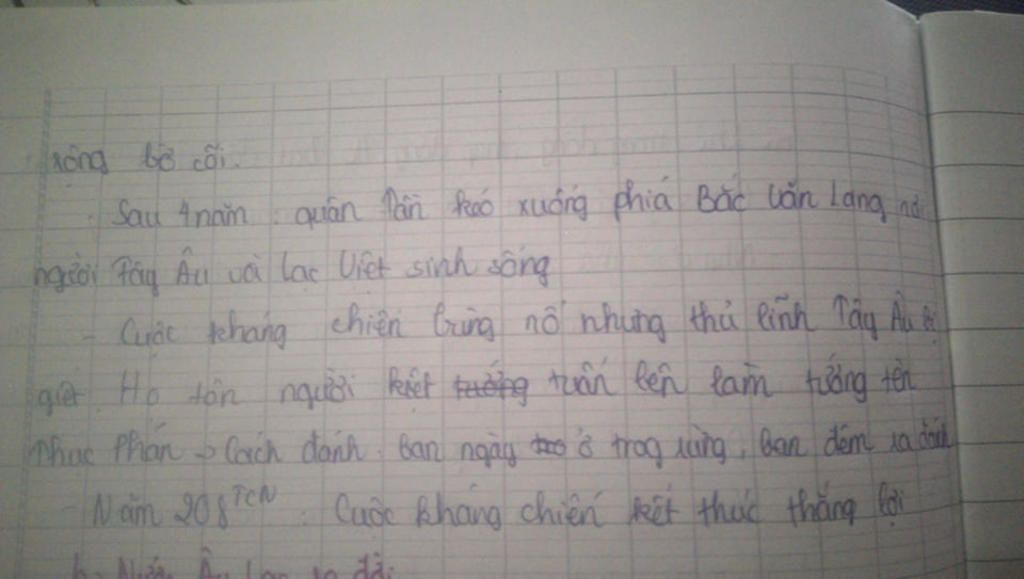 rộng bờ cõi.
. Sau 4 năm : quân Tần kéo xuống phía Bắc Văn Lang nơi
người Tây Âu và Lạc Việt sinh sống
- Cuộc kháng chiến bùng nổ nhưng thủ lĩnh Tây Âu bị
giết. Họ tôn người kiệt tuấn lên làm tướng tên
Thục Phán -> Cách đánh : Ban ngày ở trog rừng, Ban đêm ra đánh
- Năm 208 TCN : Cuộc kháng chiến kết thúc thắng lợi
b. Nước Âu Lạc ra đời